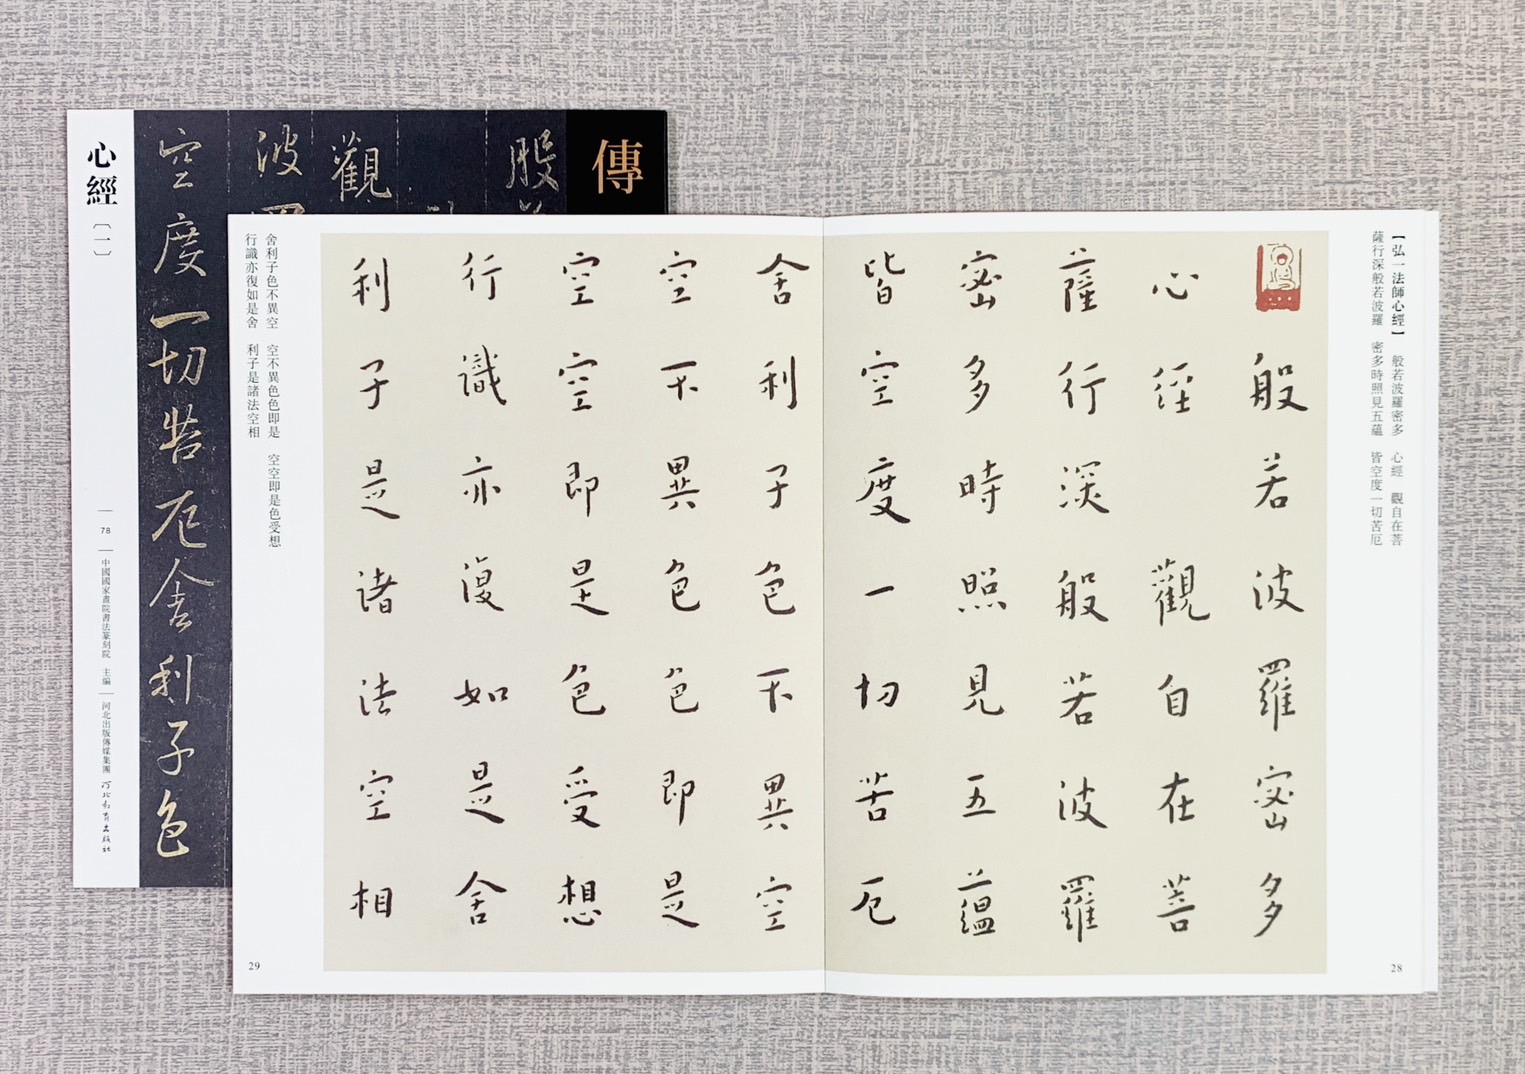 傳
般
觀
波
空度一切苦厄舍利子色
心經〔一〕
78
中國國家畫院書法篆刻院 主編
河北出版傳媒集團 河北教育出版社
【弘一法師心經】 般若波羅密多 心經 觀自在菩
薩行深般若波羅 密多時照見五蘊 皆空度一切苦厄
28
般若波羅密多
心經 觀自在菩
薩行深般若波羅
密多時照見五蘊
皆空度一切苦厄
舍利子色不異空
空不異色色即是
空空即是色受想
行識亦復如是舍
利子是諸法空相
舍利子色不異空 空不異色色即是 空空即是色受想
行識亦復如是舍 利子是諸法空相
29